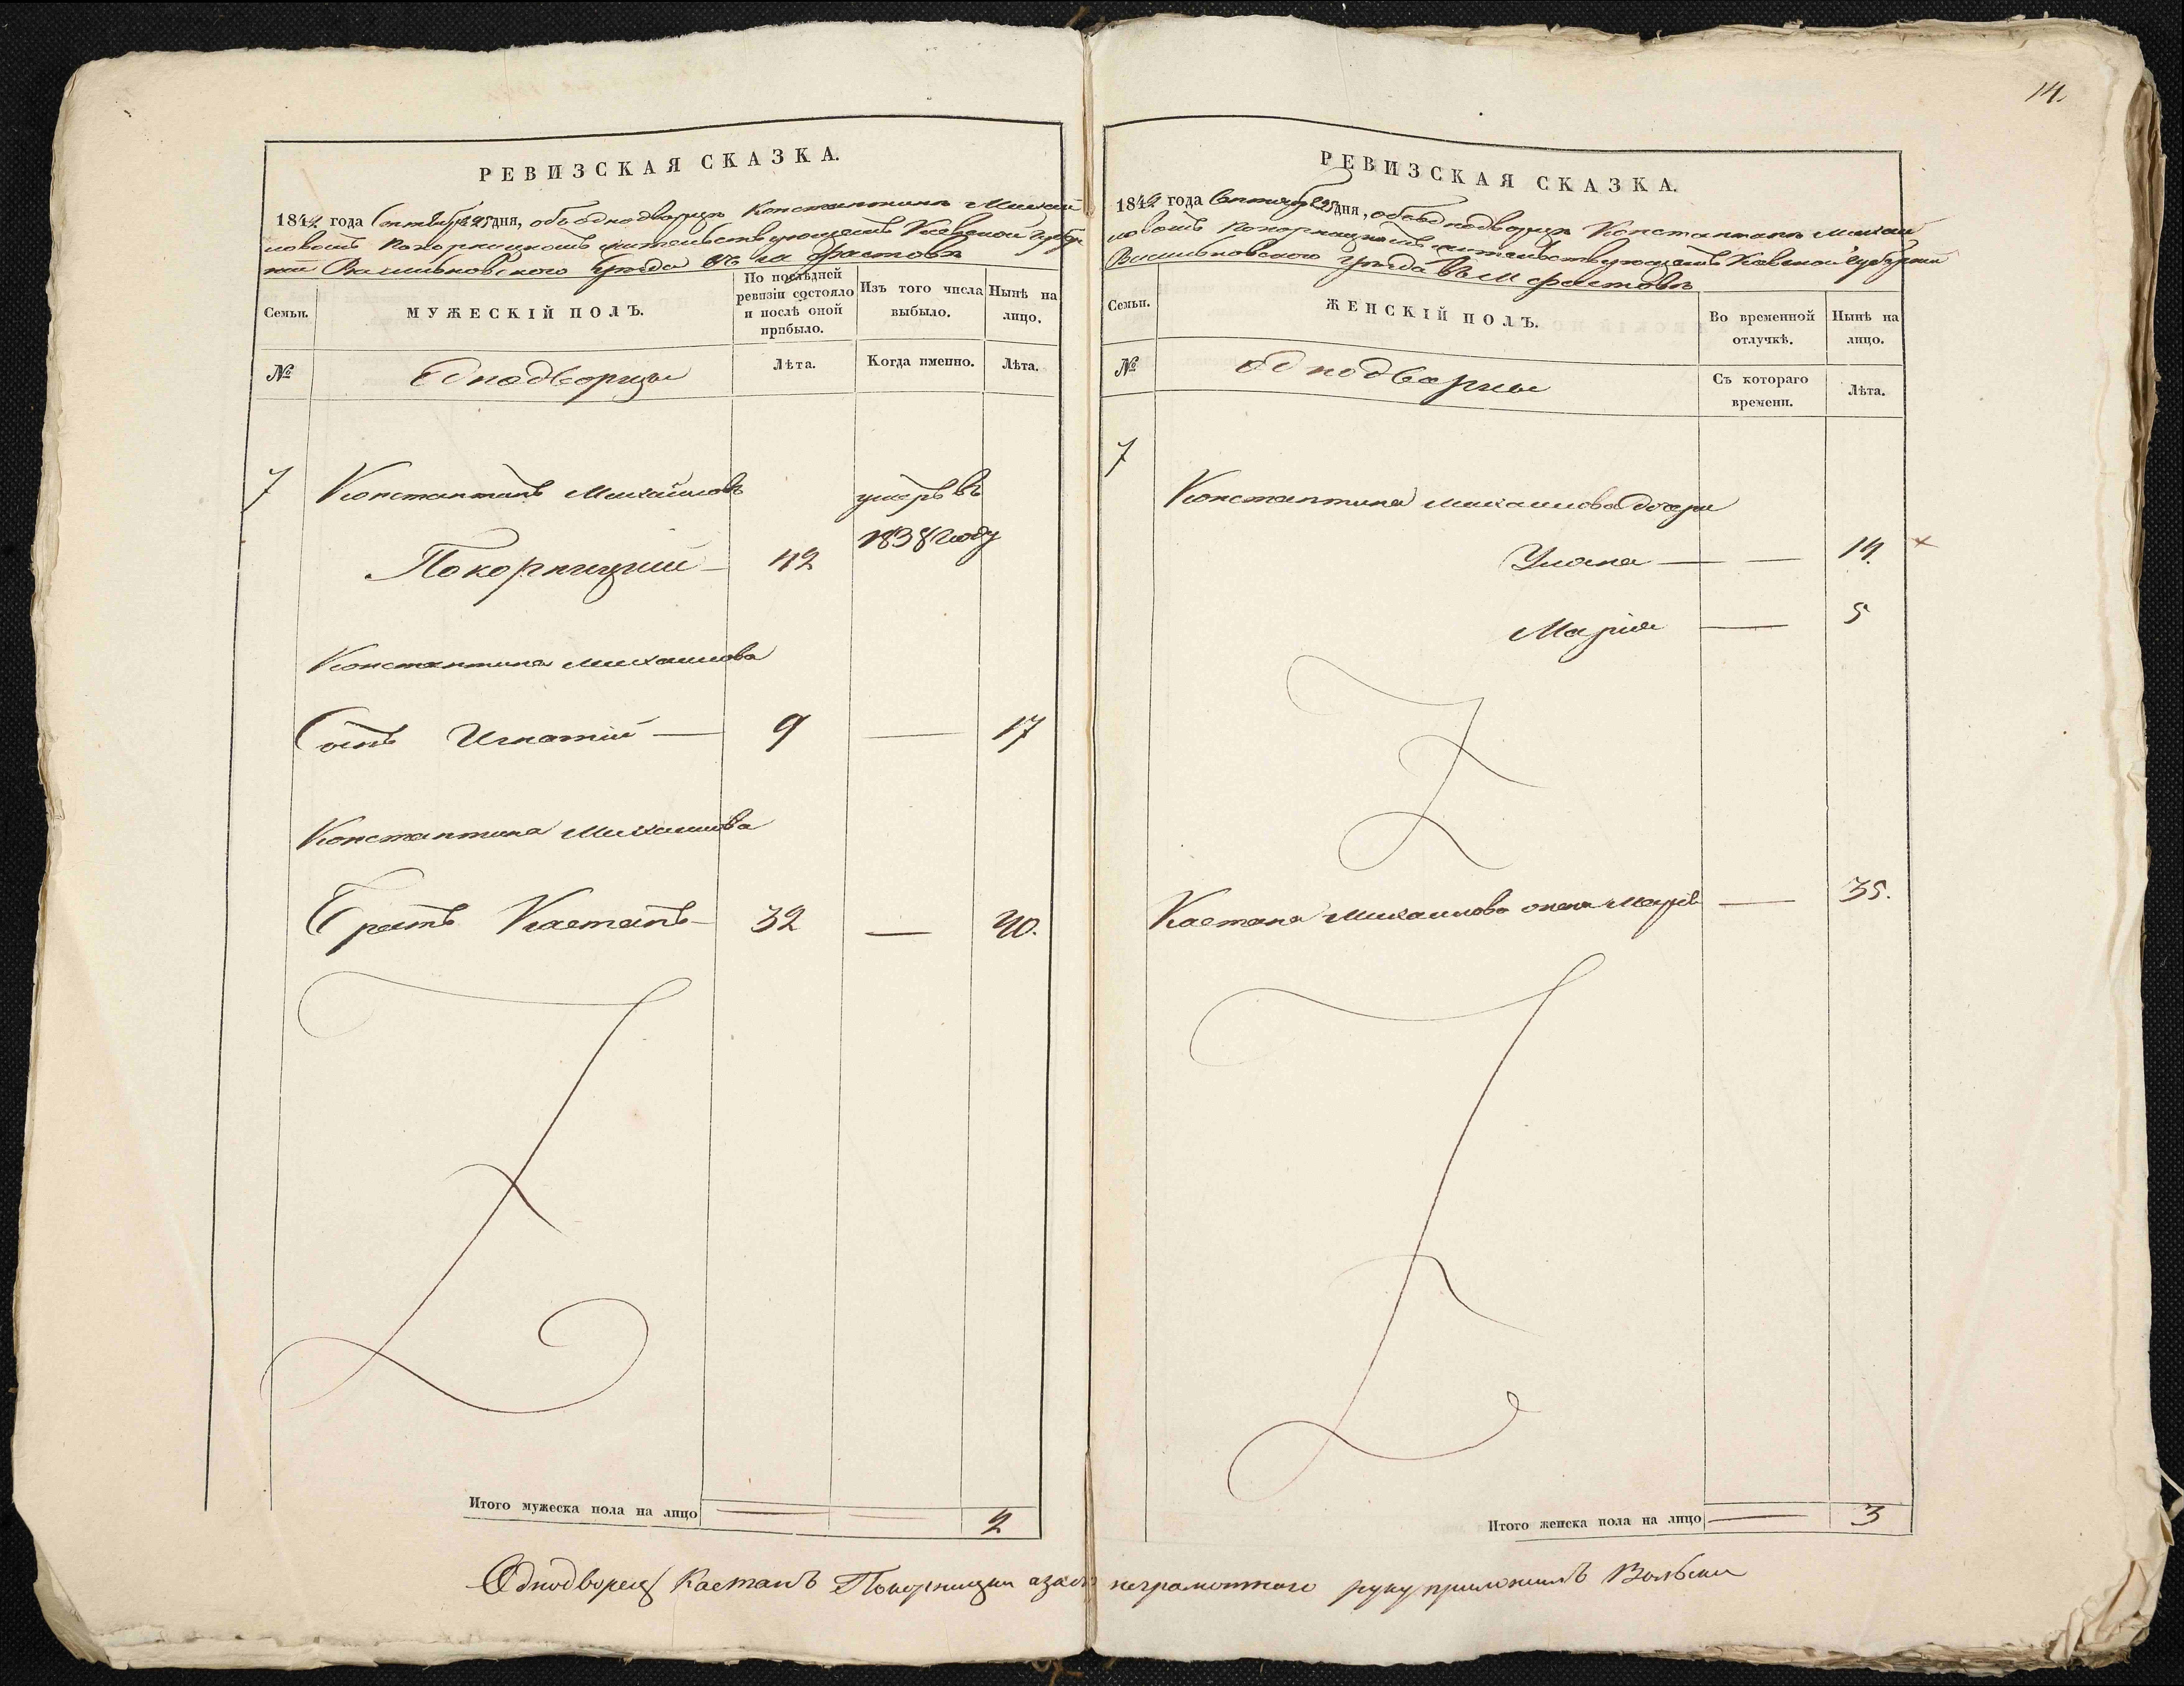 14.
РЕВИЗСКАЯ СКАЗКА.
1842 года Сентября 25 дня, объ однодворцѣ Константинѣ Михай
ловомъ Покорницкомъ жительствующемъ Кіевской Губер
ніи Васильковскаго Уезда въ м Фастовѣ
Семьи.
МУЖЕСКІЙ ПОЛЪ.
По послѣдней ревизіи состояло и послѣ оной прибыло.
Изъ того числа выбыло.
Нынѣ на лицо.
№
Однодворцы
Лѣта.
Когда именно.
Лѣта.
7 Константинъ Михайловъ умеръ въ
Покорницкій — 42 1838 году
Константина Михайлова
Сынъ Игнатій — 9 — 17
Константина Михайлова
Братъ Каетанъ — 32 — 40.
Итого мужеска пола на лицо — — 2
РЕВИЗСКАЯ СКАЗКА.
1842 года Сентября 25 дня, объ однодворцѣ Константинѣ Михай
ловомъ Покорницкомъ жительствующемъ Кіевской Губерніи
Васильковскаго Уезда въ м Фастовѣ
Семьи.
ЖЕНСКІЙ ПОЛЪ.
Во временной отлучкѣ.
Нынѣ на лицо.
№
Однодворцы
Съ котораго времени.
Лѣта.
7
Константина Михайлова дочери
Уляна — — 14. ×
Марія — 5
Каетана Михайлова жена Марія — 35.
Итого женска пола на лицо — 3
Однодворец Каетанъ Покорницки а за него неграмотнаго руку приложилъ